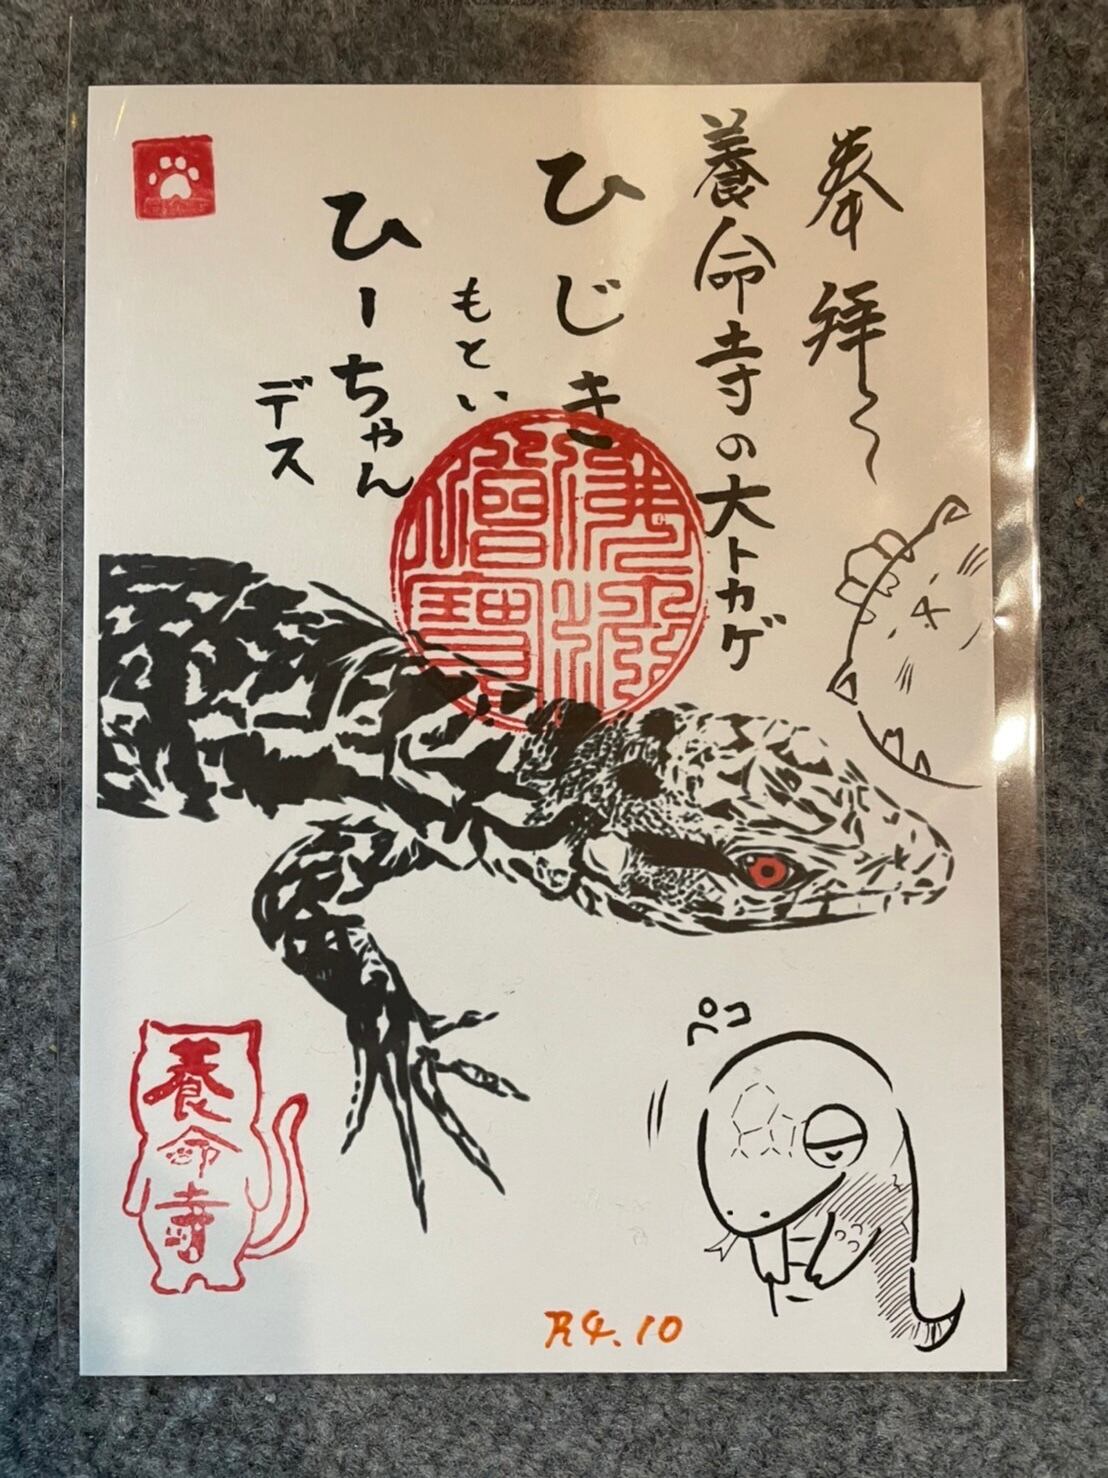 奉拝〜
養命寺の大トカゲ
ひじき
もとい
ひーちゃん
デス
ペコ
養命寺
R4.10